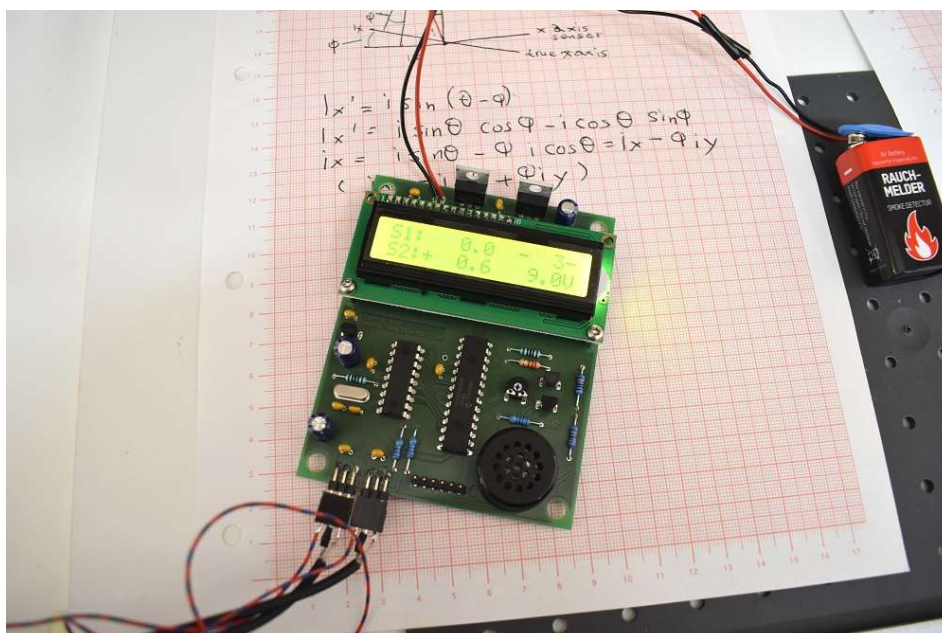 φ
x axis
sensor
φ
true x axis
ix' = i sin (θ-φ)
ix' = i sinθ cosφ - i cosθ sinφ
ix = i sinθ - φ i cosθ = ix - φiy
+ φiy )
S1: 0.0 - 3-
S2:+ 0.6 9.0V
RAUCH-
MELDER
SMOKE DETECTOR
1 2 3 4 5 6 7 8 9 10 11 12 13 14 15 16 17